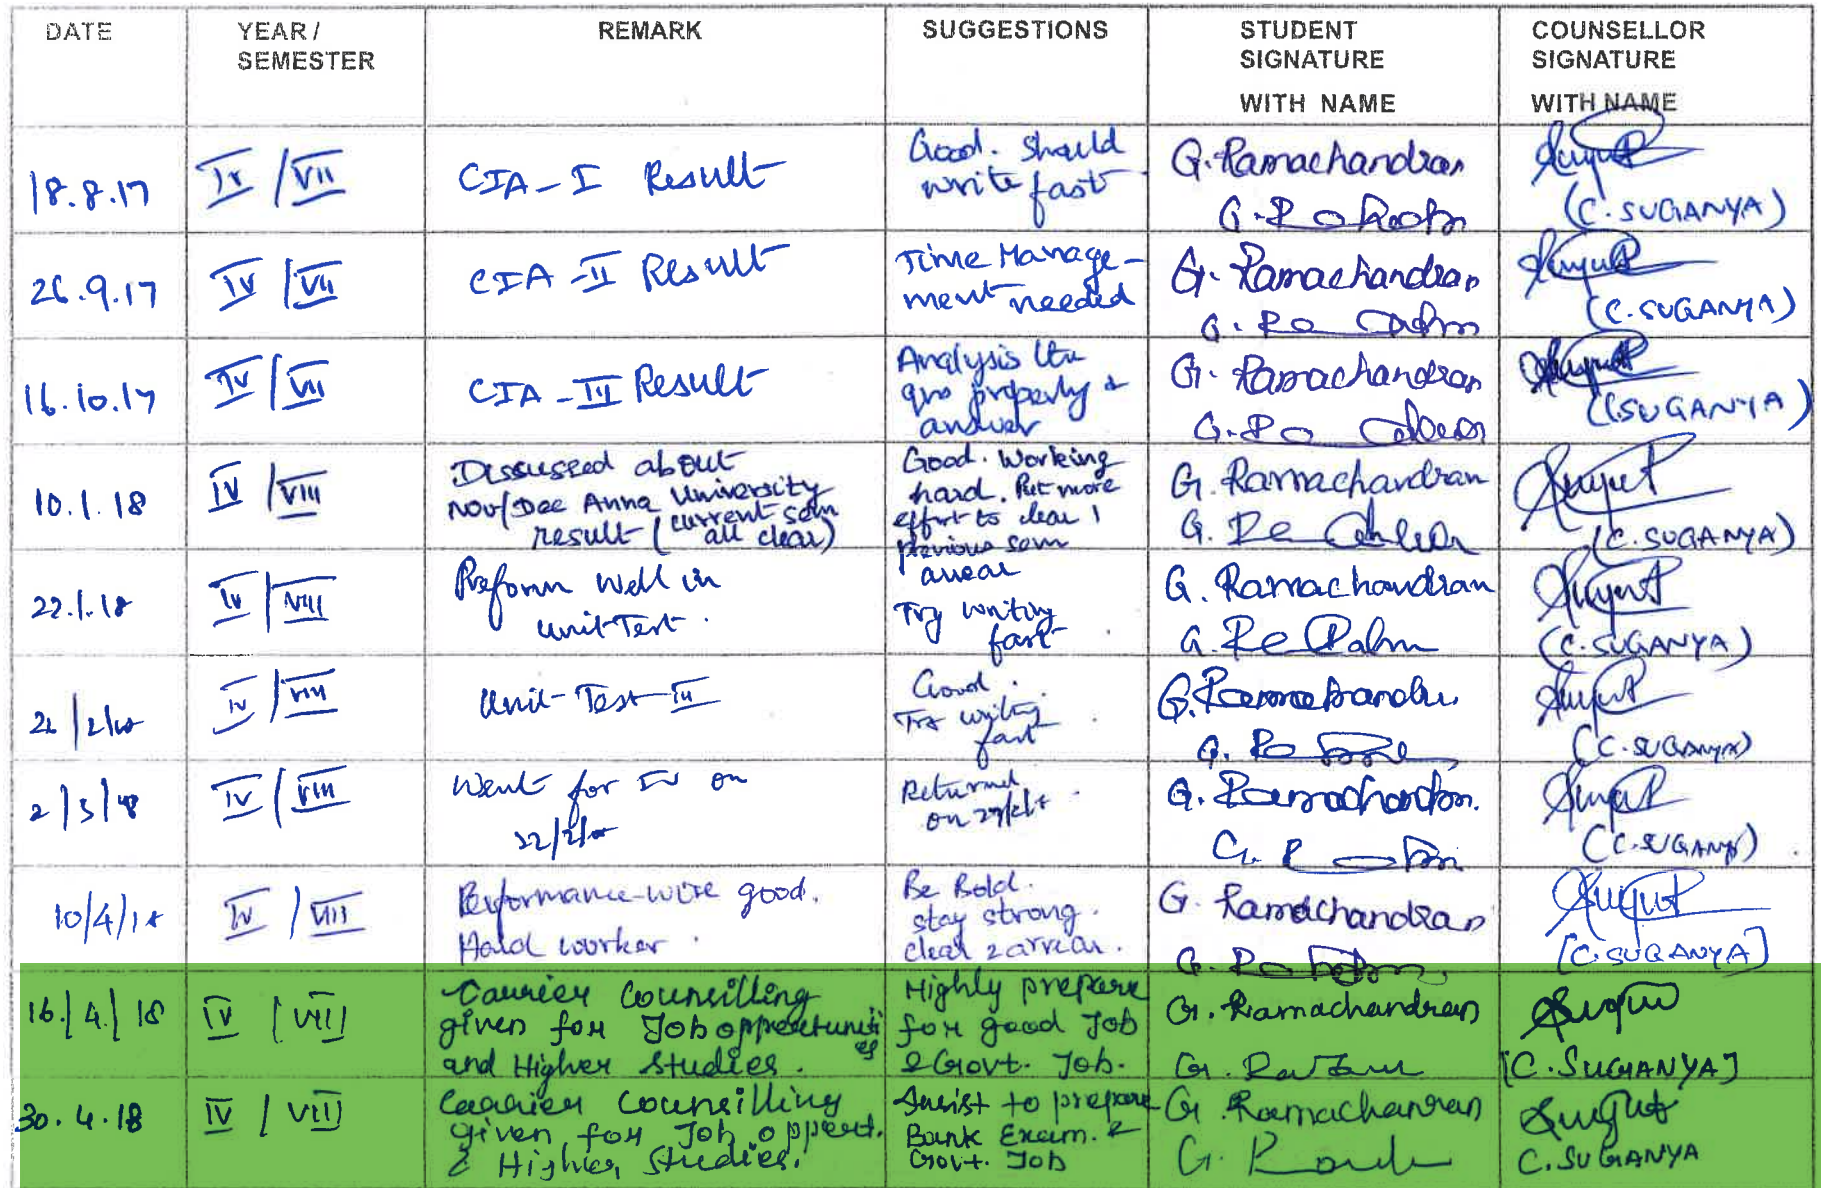 DATE
YEAR /
SEMESTER
REMARK
SUGGESTIONS
STUDENT
SIGNATURE
WITH NAME
COUNSELLOR
SIGNATURE
WITH NAME
18.8.17
IV / VII
CIA - I Result
Good. Should
write fast
G. Ramachandran
(C. SUGANYA)
26.9.17
IV / VII
CIA - II Result
Time Manage-
ment needed
G. Ramachandran
(C. SUGANYA)
16.10.17
IV / VII
CIA - III Result
Analysis the
qns properly &
answer
G. Ramachandran
(C. SUGANYA)
10.1.18
IV / VIII
Disscussed about
Nov/Dec Anna University
result (current sem
all clear)
Good. Working
hard. Put more
effort to clear 1
previous sem
arrear
G. Ramachandran
(C. SUGANYA)
22.1.18
IV / VIII
Preform well in
unit Test.
Try writing
fast.
G. Ramachandran
(C. SUGANYA)
IV / VIII
Unit Test
Good.
Try writing
fast.
(C. SUGANYA)
2/3/18
IV / VIII
Went for IV on
22/2/18
Returned
on
G. Ramachandran.
(C. SUGANYA)
10/4/18
IV / VIII
Performance-wise good.
Hard worker.
Be Bold.
stay strong.
clear 2 arrear.
G. Ramachandran
[C. SUGANYA]
16/4/18
IV / VIII
Carrier Counsilling
given for Job oppourtunities
and Higher Studies.
Highly prepare
for good Job
& Govt. Job.
G. Ramachandran
[C. SUGANYA]
30.4.18
IV / VIII
Carrier Counsilling
given for Job oppert.
& Higher Studies.
Insist to prepare
Bank Exam. &
Govt. Job
G. Ramachanran
C. SUGANYA